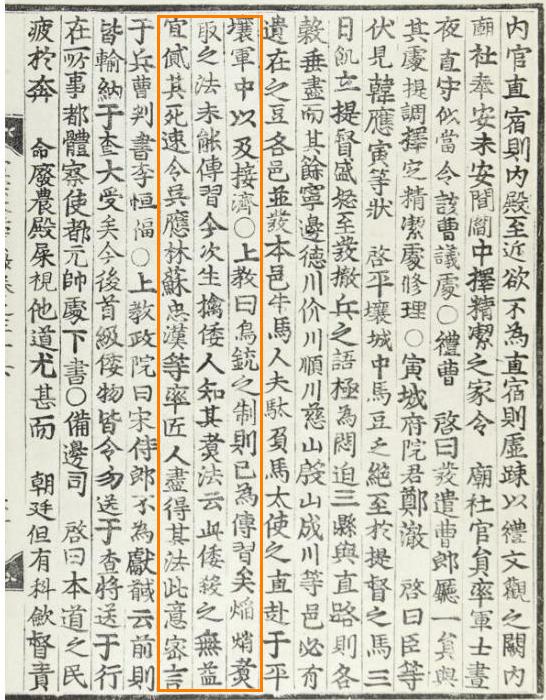 內官直宿則內殿至近欲不為直宿則虛踈以禮文觀之闕內
廟社奉安未安閭閻中擇精潔之家令 廟社官員率軍士晝
夜直守似當令該曹議處○禮曹 啓曰發遣曹郎廳一員與
其處提調擇定精潔處修理○寅城府院君鄭澈 啓曰臣等
伏見韓應寅等狀 啓平壤城中馬豆乏絕至於提督之馬三
日飢立提督盛怒至發撤兵之語極為悶迫三縣與直路則各
穀垂盡而其餘寧邊德川价川順川慈山殷山成川等邑必有
遺在之豆各邑並發本邑牛馬人夫駄負馬太使之直赴于平
壤軍中以及接濟○上教曰鳥銃之制則已為傳習矣焰焇煑
取之法未能傳習今次生擒倭人知其煑法云此倭殺之無益
宜貸其死速令吳應林蘇忠漢等率匠人盡得其法此意密言
于兵曹判書李恒福○上教政院曰宋侍郎不為獻馘云前則
皆輸納于査大受矣今後首級倭物皆令勿送于査將送于行
在所事都體察使都元帥處下書○備邊司 啓曰本道之民
疲於奔 命廢農殿屎視他道尤甚而 朝廷但有科斂督責